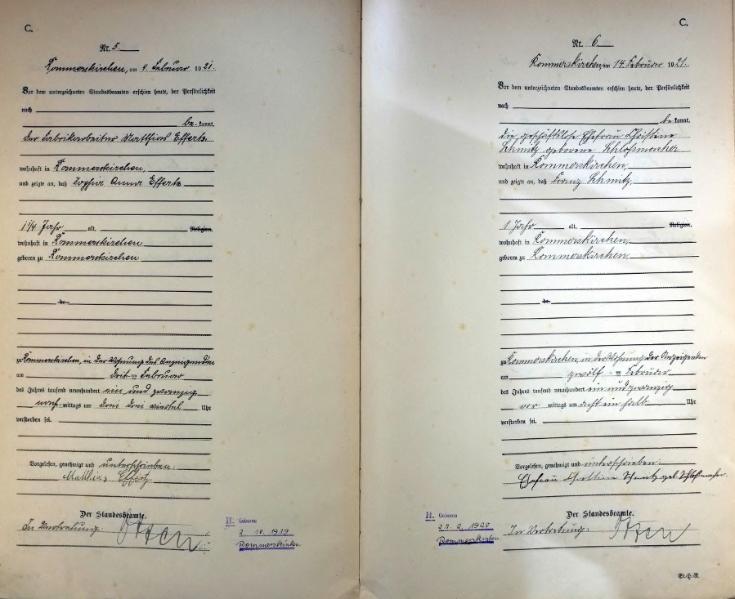 C.
Nr. 5
Rommerskirchen, am 4. Februar 1921.
Vor dem unterzeichneten Standesbeamten erschien heute, der Persönlichkeit
nach
be kannt,
der Fabrikarbeiter Matthias Effertz
wohnhaft in Rommerskirchen,
und zeigte an, daß Sophia Anna Effertz
1 1/4 Jahr alt, Religion,
wohnhaft in Rommerskirchen
geboren zu Rommerskirchen
zu Rommerskirchen, in der Wohnung des Anzeigenden
am Februar
des Jahres tausend neunhundert ein und zwanzig
nach mittags um drei viertel Uhr
verstorben sei.
Vorgelesen, genehmigt und unterschrieben
Mathias Effertz
Der Standesbeamte.
In Vertretung:
Geboren
10. 1919
Rommerskirchen
C.
Nr. 6
Rommerskirchen, am 14. Februar 1921.
Vor dem unterzeichneten Standesbeamten erschien heute, der Persönlichkeit
nach
be kannt,
die geschäftslose Ehefrau Christine
Schmitz geborene Schlossmacher
wohnhaft in Rommerskirchen,
und zeigte an, daß Franz Schmitz,
1 Jahr alt, Religion,
wohnhaft in Rommerskirchen,
geboren zu Rommerskirchen,
zu Rommerskirchen, in der Wohnung der Anzeigenden
am zwölften Februar
des Jahres tausend neunhundert ein und zwanzig
vor mittags um acht ein halb Uhr
verstorben sei.
Vorgelesen, genehmigt und unterschrieben
Ehefrau Christine Schmitz geb. Schlossmacher
Der Standesbeamte.
In Vertretung:
Geboren
2. 1920
Rommerskirchen